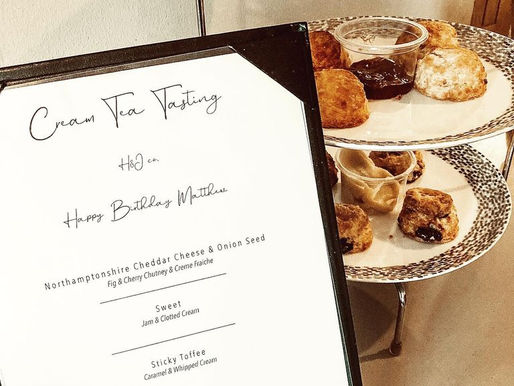 Cream Tea Tasting
H&J co.
Happy Birthday Matthew
Northamptonshire Cheddar Cheese & Onion Seed
Fig & Cherry Chutney & Creme Fraiche
Sweet
Jam & Clotted Cream
Sticky Toffee
Caramel & Whipped Cream